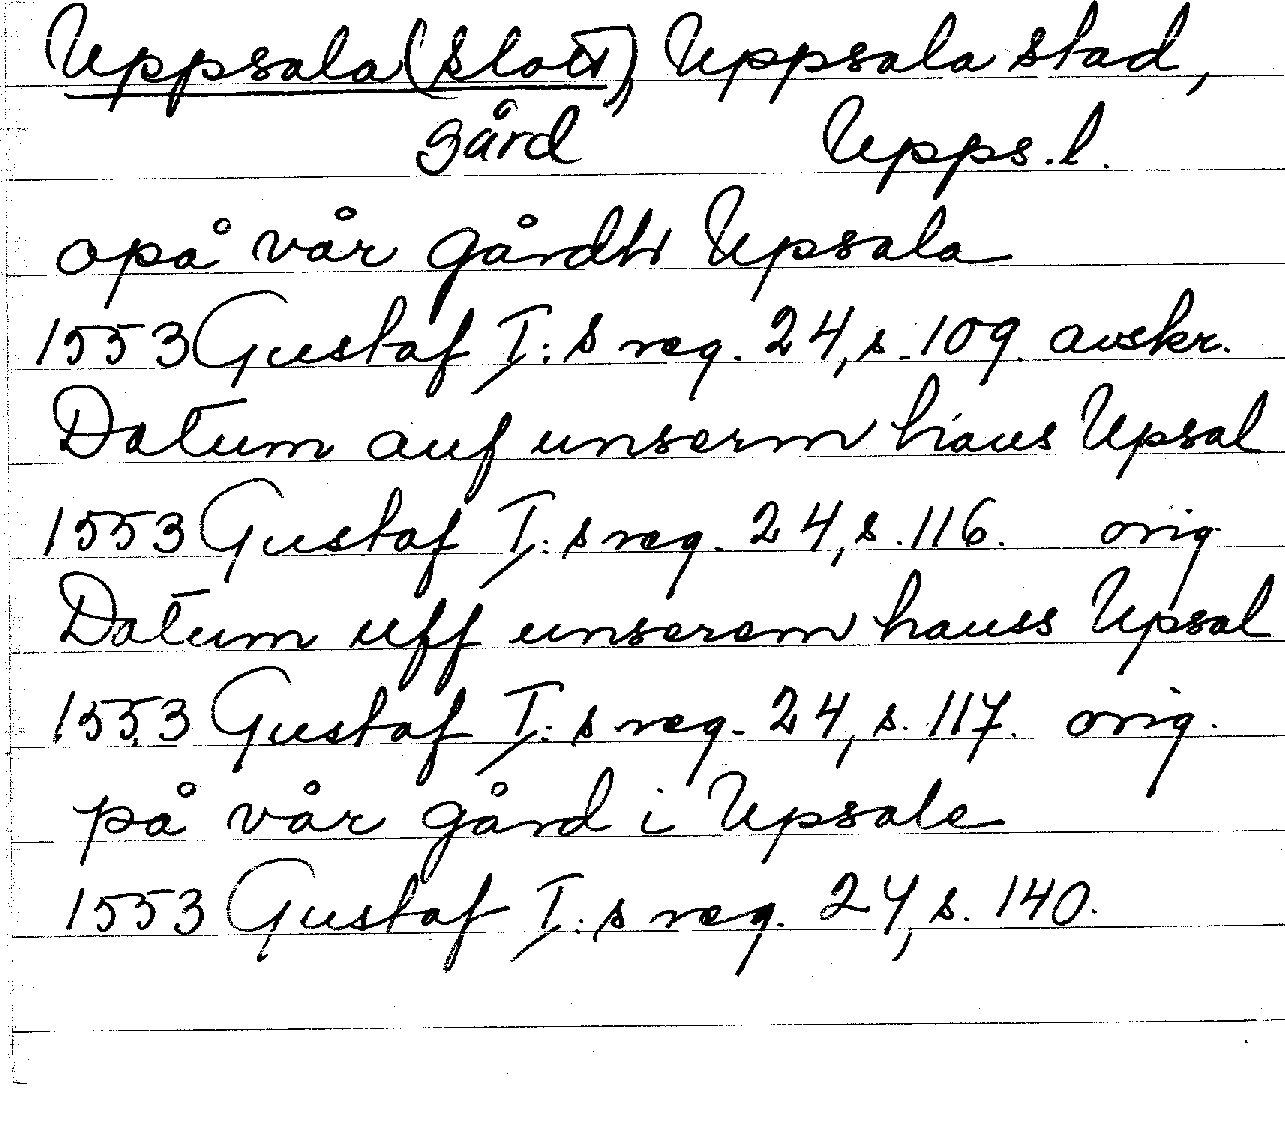 Uppsala (slott), Uppsala stad,
gård Upps.l.
opå vår gårdh Upsala
1553 Gustaf I:s reg. 24, s. 109. avskr.
Datum auf unserm haus Upsal
1553 Gustaf I:s reg. 24, s. 116. orig
Datum uff unserem hauss Upsal
1553 Gustaf I:s reg. 24, s. 117. orig.
på vår gård i Upsale
1553 Gustaf I:s reg. 24, s. 140.